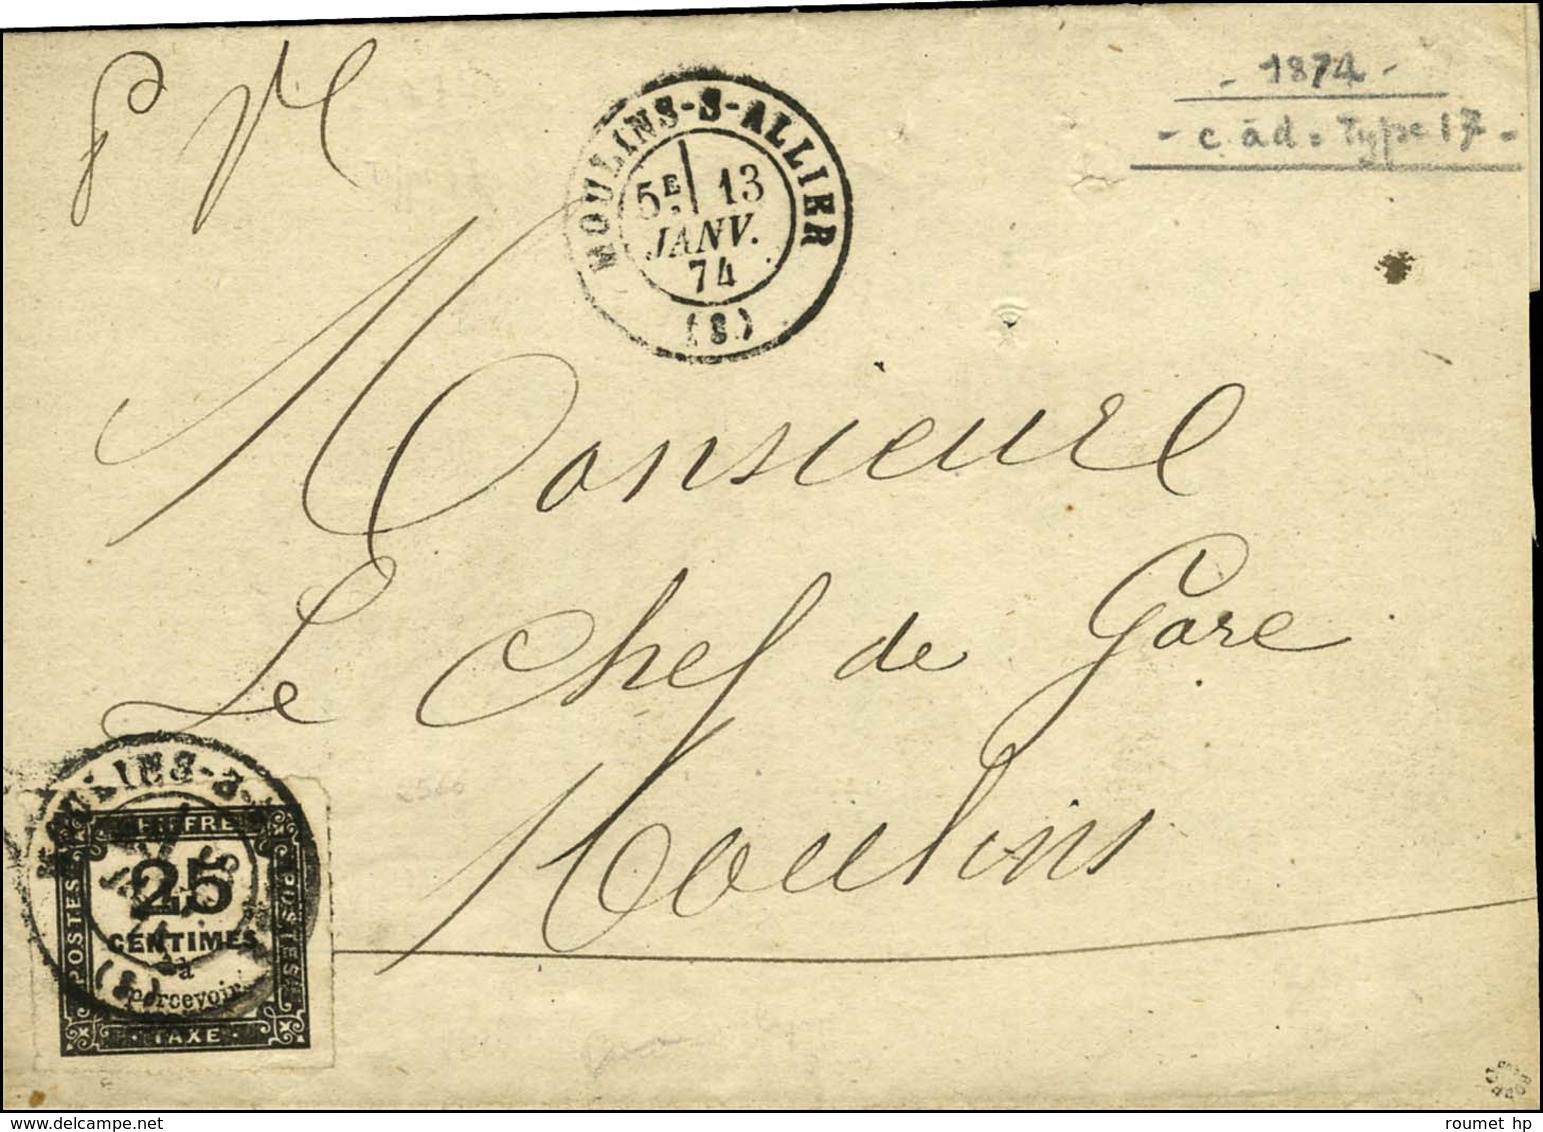 P V
- 1874 -
- c. à d. Type 17 -
MOULINS-S-ALLIER
5E 13
JANV.
74
(8.)
Monsieur
Le Chef de Gare
Moulins
MOULINS-S-
CHIFFRE
POSTES
POSTES
25
CENTIMES
à
percevoir
TAXE
roumet hp